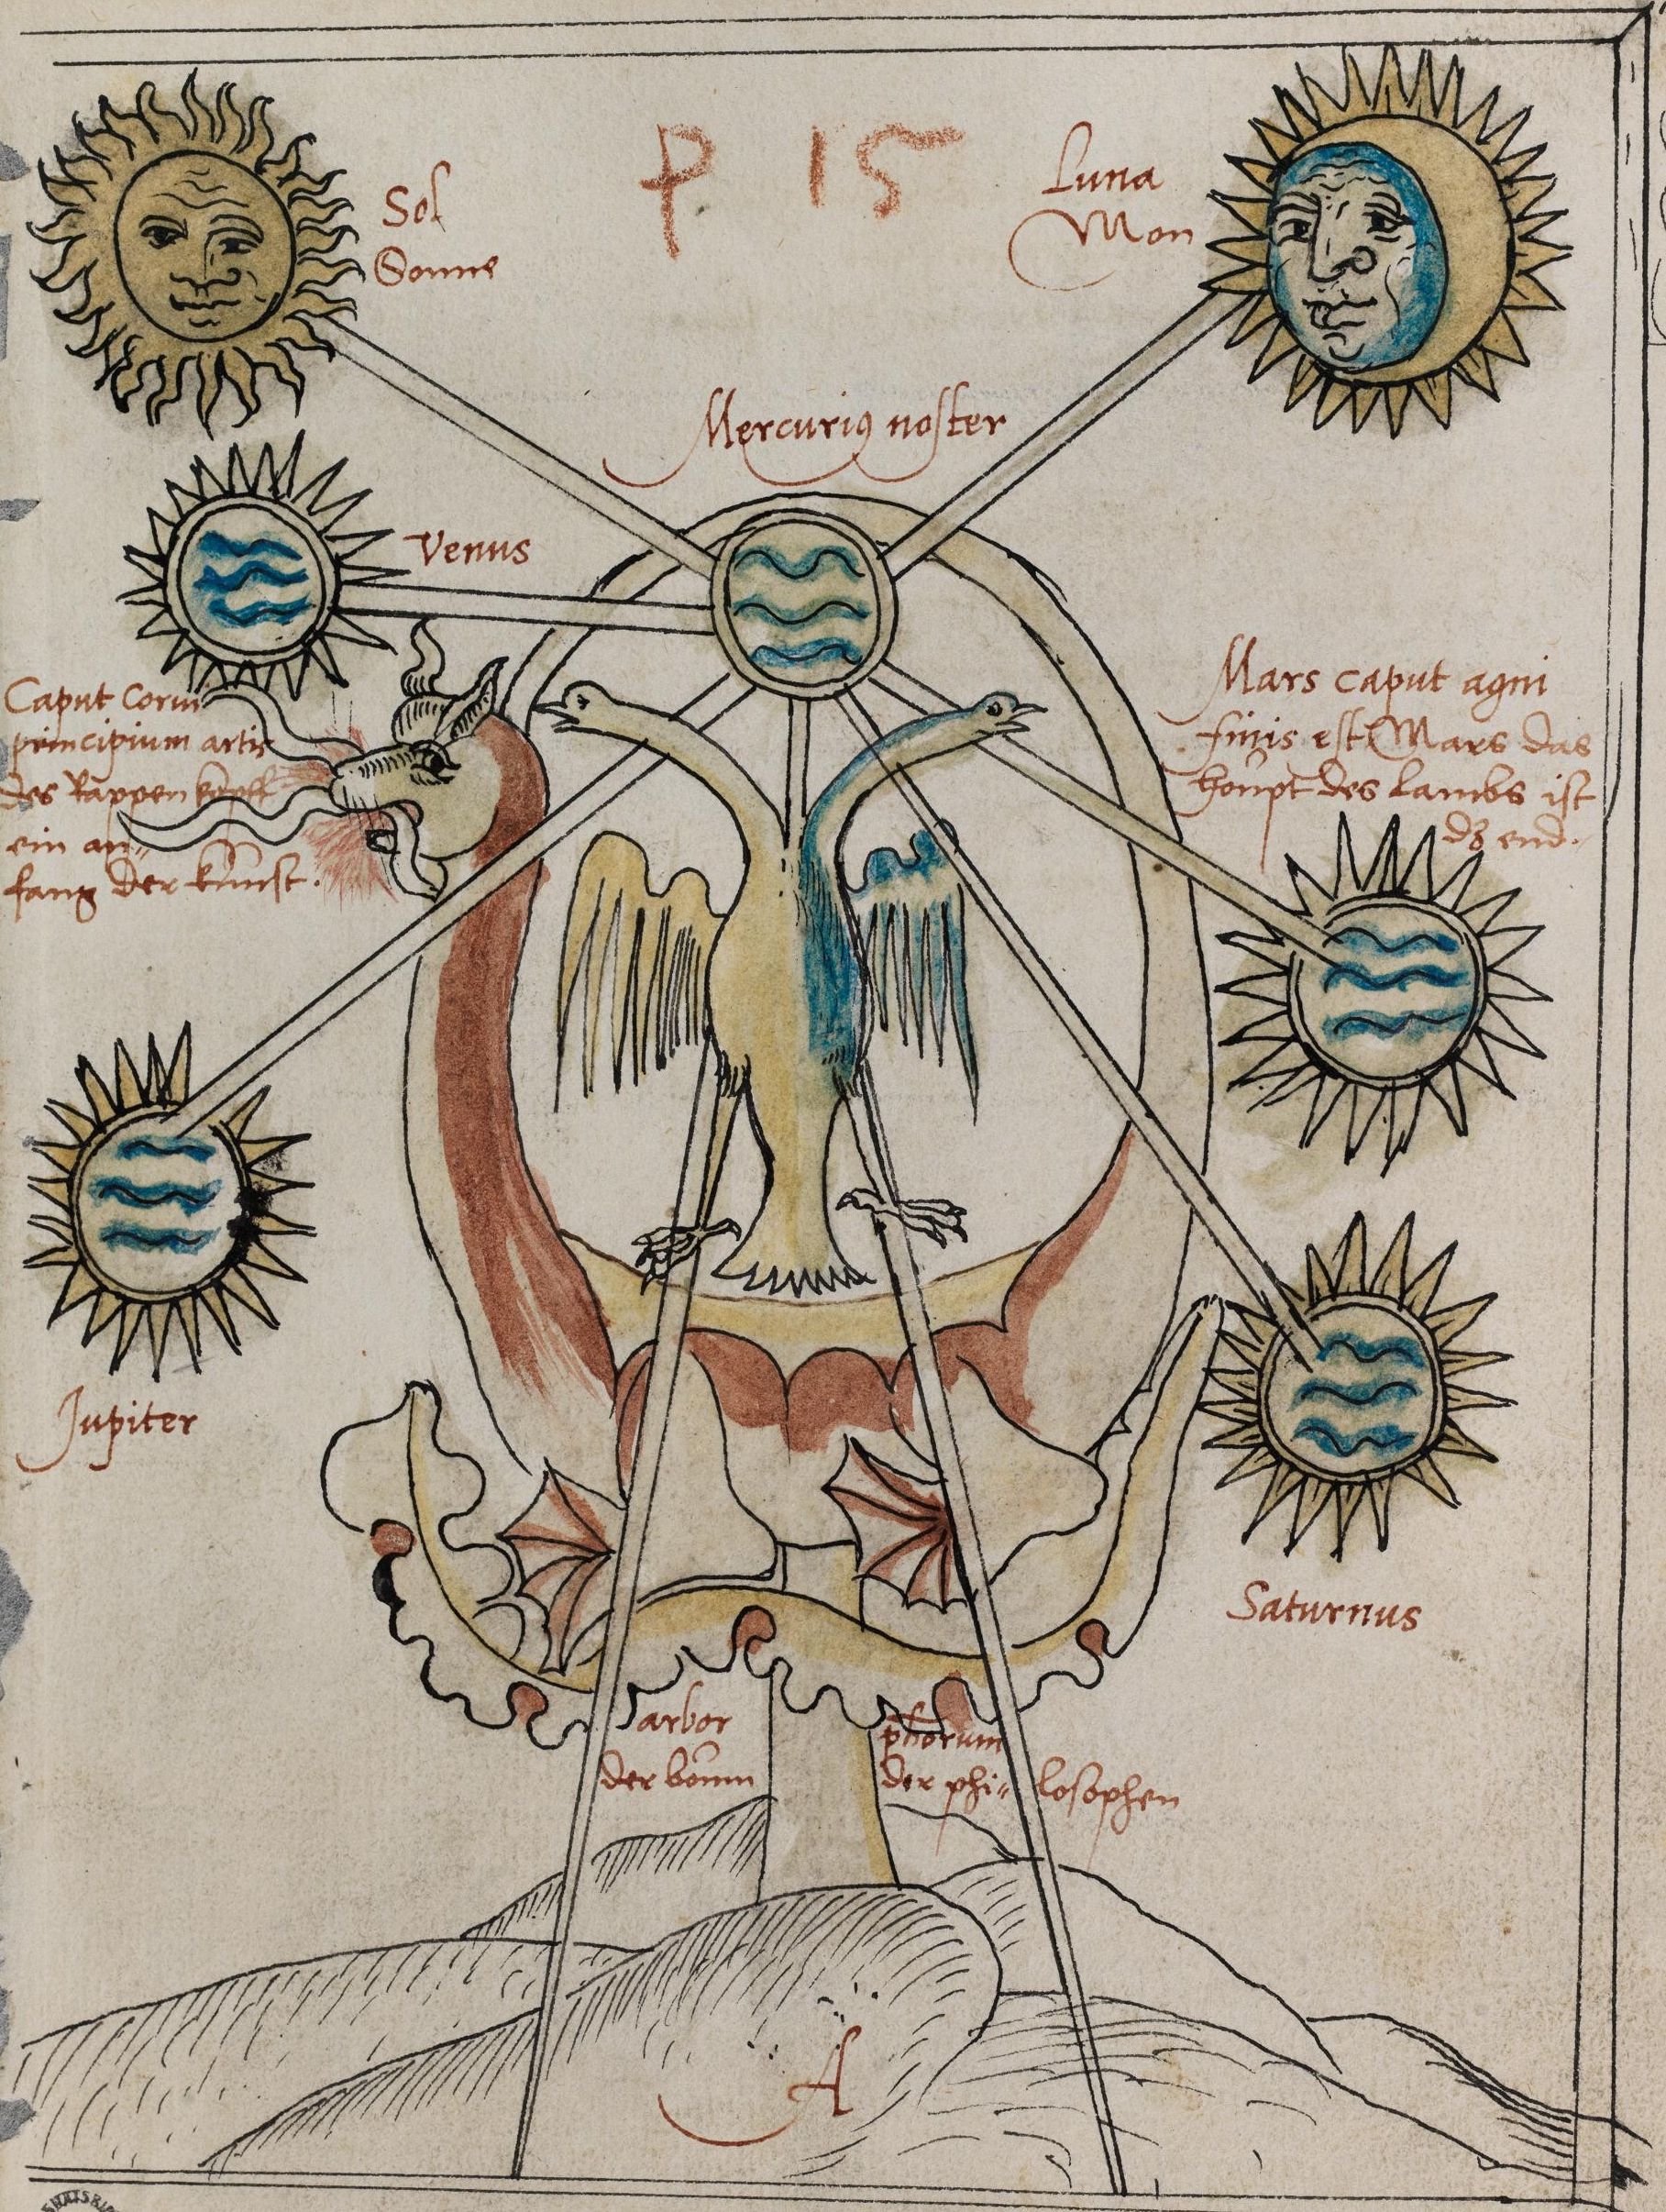 P 15
Sol
Sonne
Luna
Mon
Mercuriꝰ noster
Venus
Caput Corui
principium artis
des Rappen kopff
ein an⸗
fang der kunst.
Mars caput agni
finis est Mars das
houpt des Lambs ist
dz end.
Jupiter
Saturnus
arbor ph̄orum
der boum der phi⸗losophen
A